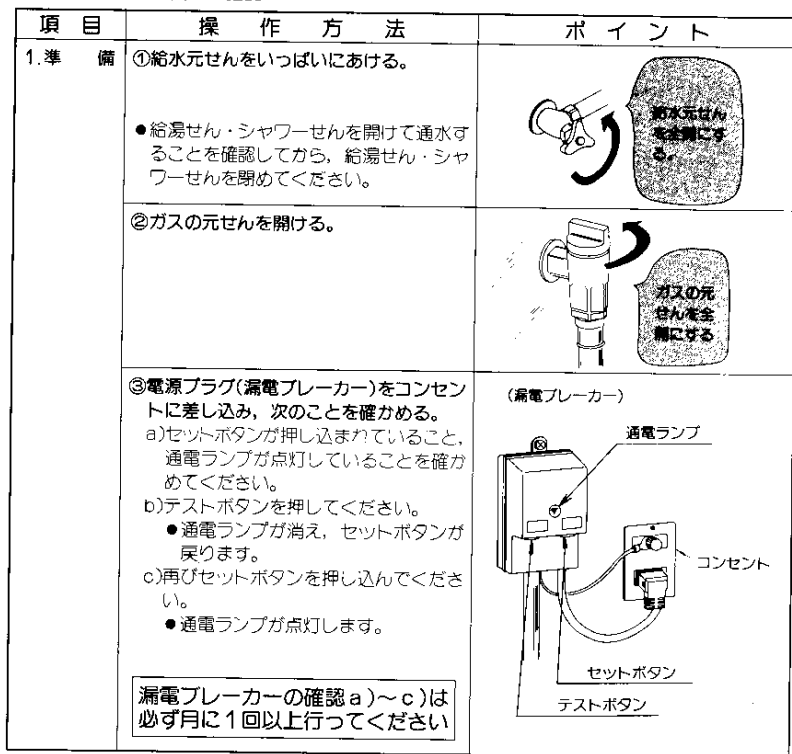 項 目
操 作 方 法
ポ イ ン ト
1.準 備
①給水元せんをいっぱいにあける。
●給湯せん・シャワーせんを開けて通水す
ることを確認してから，給湯せん・シャ
ワーせんを閉めてください。
給水元せん
を全開にす
る。
②ガスの元せんを開ける。
ガスの元
せんを全
開にする
③電源プラグ(漏電ブレーカー)をコンセン
トに差し込み，次のことを確かめる。
a)セットボタンが押し込まれていること，
通電ランプが点灯していることを確か
めてください。
b)テストボタンを押してください。
●通電ランプが消え，セットボタンが
戻ります。
c)再びセットボタンを押し込んでくださ
い。
●通電ランプが点灯します。
漏電ブレーカーの確認a)～c)は
必ず月に1回以上行ってください
(漏電ブレーカー)
通電ランプ
コンセント
セットボタン
テストボタン